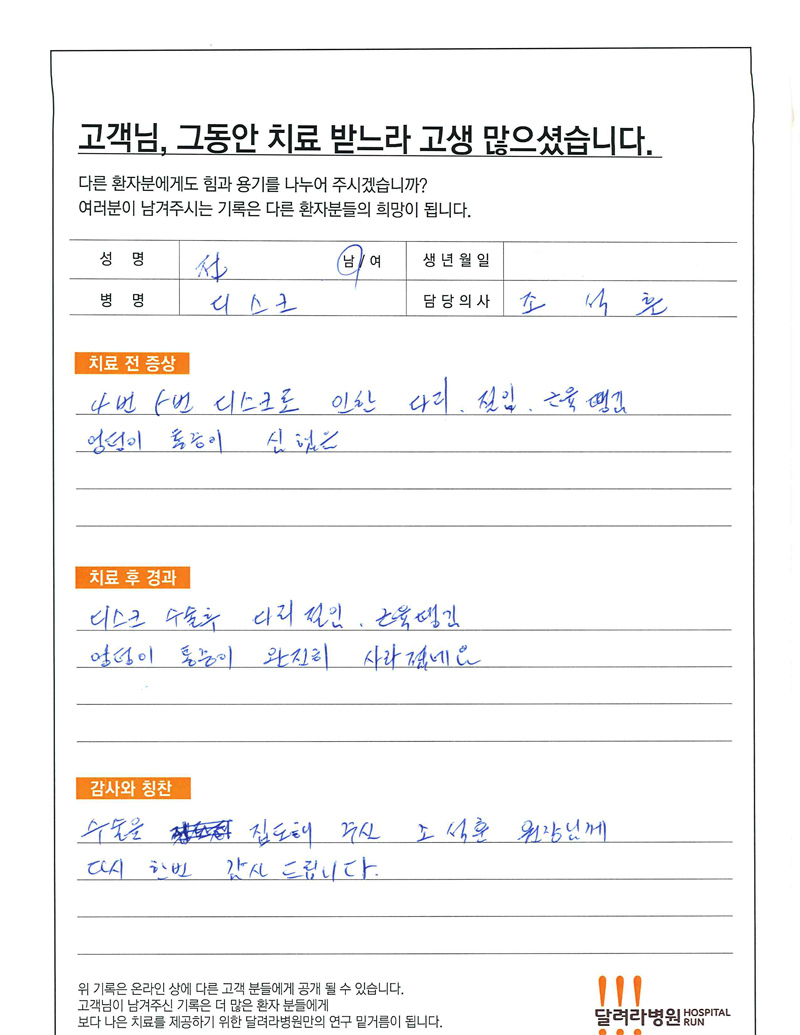 고객님, 그동안 치료 받느라 고생 많으셨습니다.
다른 환자분에게도 힘과 용기를 나누어 주시겠습니까?
여러분이 남겨주시는 기록은 다른 환자분들의 희망이 됩니다.
성 명 남/여 생년월일
병 명 디스크 담당의사 조 석 훈
치료 전 증상
4번 5번 디스크로 인한 다리. 절임. 근육땡김
엉덩이 통증이 심했음
치료 후 경과
디스크 수술후 다리절임. 근육땡김
엉덩이 통증이 완전히 사라졌네요
감사와 칭찬
수술을 집도해 주신 조석훈 원장님께
다시 한번 감사 드립니다.
위 기록은 온라인 상에 다른 고객 분들에게 공개 될 수 있습니다.
고객님이 남겨주신 기록은 더 많은 환자 분들에게
보다 나은 치료를 제공하기 위한 달려라병원만의 연구 밑거름이 됩니다.
!!!
달려라병원 HOSPITAL RUN